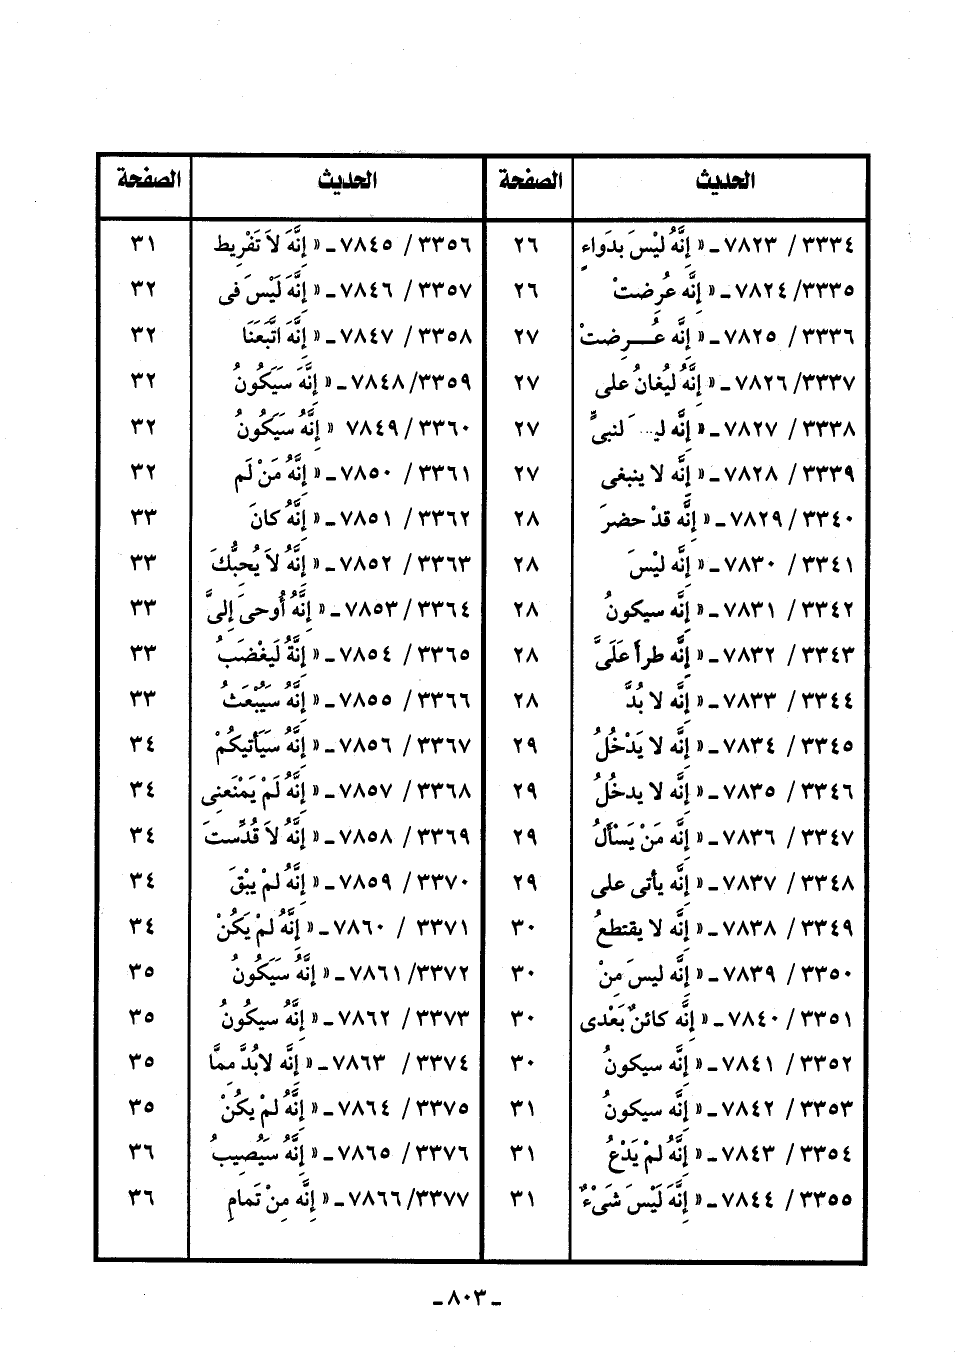 الحديث الصفحة الحديث الصفحة
٣٣٣٤ / ٧٨٢٣ ـ « إِنَّهُ لَيْسَ بِدَوَاءٍ ٢٦ ٣٣٥٦ / ٧٨٤٥ ـ « إِنَّهَ لاَ تَفْرِيط ٣١
٣٣٣٥/ ٧٨٢٤ ـ « إِنَّه عُرِضتْ ٢٦ ٣٣٥٧ / ٧٨٤٦ ـ « إِنَّهَ لَيْسَ فى ٣٢
٣٣٣٦ / ٧٨٢٥ ـ « إِنَّه عُـــرِضتْ ٢٧ ٣٣٥٨ / ٧٨٤٧ ـ « إِنَّهَ اتَّبَعَنَا ٣٢
٣٣٣٧/ ٧٨٢٦ ـ « إِنَّهُ ليُغانُ على ٢٧ ٣٣٥٩/ ٧٨٤٨ ـ « إِنَّهَ سَيَكُونُ ٣٢
٣٣٣٨ / ٧٨٢٧ ـ « إِنَّه ليـ... لنبىٍّ ٢٧ ٣٣٦٠/ ٧٨٤٩ « إِنَّهُ سَيَكُونُ ٣٢
٣٣٣٩ / ٧٨٢٨ ـ « إِنَّه لا ينبغى ٢٧ ٣٣٦١ / ٧٨٥٠ ـ « إِنَّهُ مَنْ لَم ٣٢
٣٣٤٠ / ٧٨٢٩ ـ « إِنَّه قدْ حضرَ ٢٨ ٣٣٦٢ / ٧٨٥١ ـ « إِنَّهُ كانَ ٣٣
٣٣٤١ / ٧٨٣٠ ـ « إِنَّه ليْسَ ٢٨ ٣٣٦٣ / ٧٨٥٢ ـ « إِنَّهُ لاَ يُحِبُّكَ ٣٣
٣٣٤٢ / ٧٨٣١ ـ « إِنَّه سيكونُ ٢٨ ٣٣٦٤ / ٧٨٥٣ ـ « إِنَّهُ أُوحىَ إِلىَّ ٣٣
٣٣٤٣ / ٧٨٣٢ ـ « إِنَّه طرأَ عَلَىَّ ٢٨ ٣٣٦٥ / ٧٨٥٤ ـ « إِنَّهُ لَيغْضَبُ ٣٣
٣٣٤٤ / ٧٨٣٣ ـ « إِنَّه لا بُدَّ ٢٨ ٣٣٦٦ / ٧٨٥٥ ـ « إِنَّهُ سَيُبْعَثُ ٣٣
٣٣٤٥ / ٧٨٣٤ ـ « إِنَّه لا يَدْخُلُ ٢٩ ٣٣٦٧ / ٧٨٥٦ ـ « إِنَّهُ سَيَأتيكُمْ ٣٤
٣٣٤٦ / ٧٨٣٥ ـ « إِنَّه لا يدخُلُ ٢٩ ٣٣٦٨ / ٧٨٥٧ ـ « إِنَّهُ لَمْ يَمْنَعنِى ٣٤
٣٣٤٧ / ٧٨٣٦ ـ « إِنَّه مَنْ يَسْأَلُ ٢٩ ٣٣٦٩ / ٧٨٥٨ ـ « إِنَّهُ لاَ قُدِّستَ ٣٤
٣٣٤٨ / ٧٨٣٧ ـ « إِنَّه يأتى على ٢٩ ٣٣٧٠ / ٧٨٥٩ ـ « إِنَّهُ لمْ يبْقَ ٣٤
٣٣٤٩ / ٧٨٣٨ ـ « إِنَّه لا يقتطعُ ٣٠ ٣٣٧١ / ٧٨٦٠ ـ « إِنَّهُ لمْ يَكُنْ ٣٤
٣٣٥٠ / ٧٨٣٩ ـ « إِنَّه ليسَ مِنْ ٣٠ ٣٣٧٢/ ٧٨٦١ ـ « إِنَّهُ سَيَكُونُ ٣٥
٣٣٥١ / ٧٨٤٠ ـ « إِنَّه كائنٌ بَعْدى ٣٠ ٣٣٧٣ / ٧٨٦٢ ـ « إِنَّهُ سيكُونُ ٣٥
٣٣٥٢ / ٧٨٤١ ـ « إِنَّه سيكونُ ٣٠ ٣٣٧٤ / ٧٨٦٣ ـ « إِنَّه لابُدَّ مِمَّا ٣٥
٣٣٥٣ / ٧٨٤٢ ـ « إِنَّه سيكونُ ٣١ ٣٣٧٥ / ٧٨٦٤ ـ « إِنَّهُ لمْ يكُنْ ٣٥
٣٣٥٤ / ٧٨٤٣ ـ « إِنَّهُ لمْ يَدْعُ ٣١ ٣٣٧٦ / ٧٨٦٥ ـ « إِنَّهُ سَيُصِيبُ ٣٦
٣٣٥٥ / ٧٨٤٤ ـ « إِنَّهَ لَيْسَ شَىْءٌ ٣١ ٣٣٧٧/ ٧٨٦٦ ـ « إِنَّه مِنْ تَمامِ ٣٦
ـ ٨٠٣ ـ